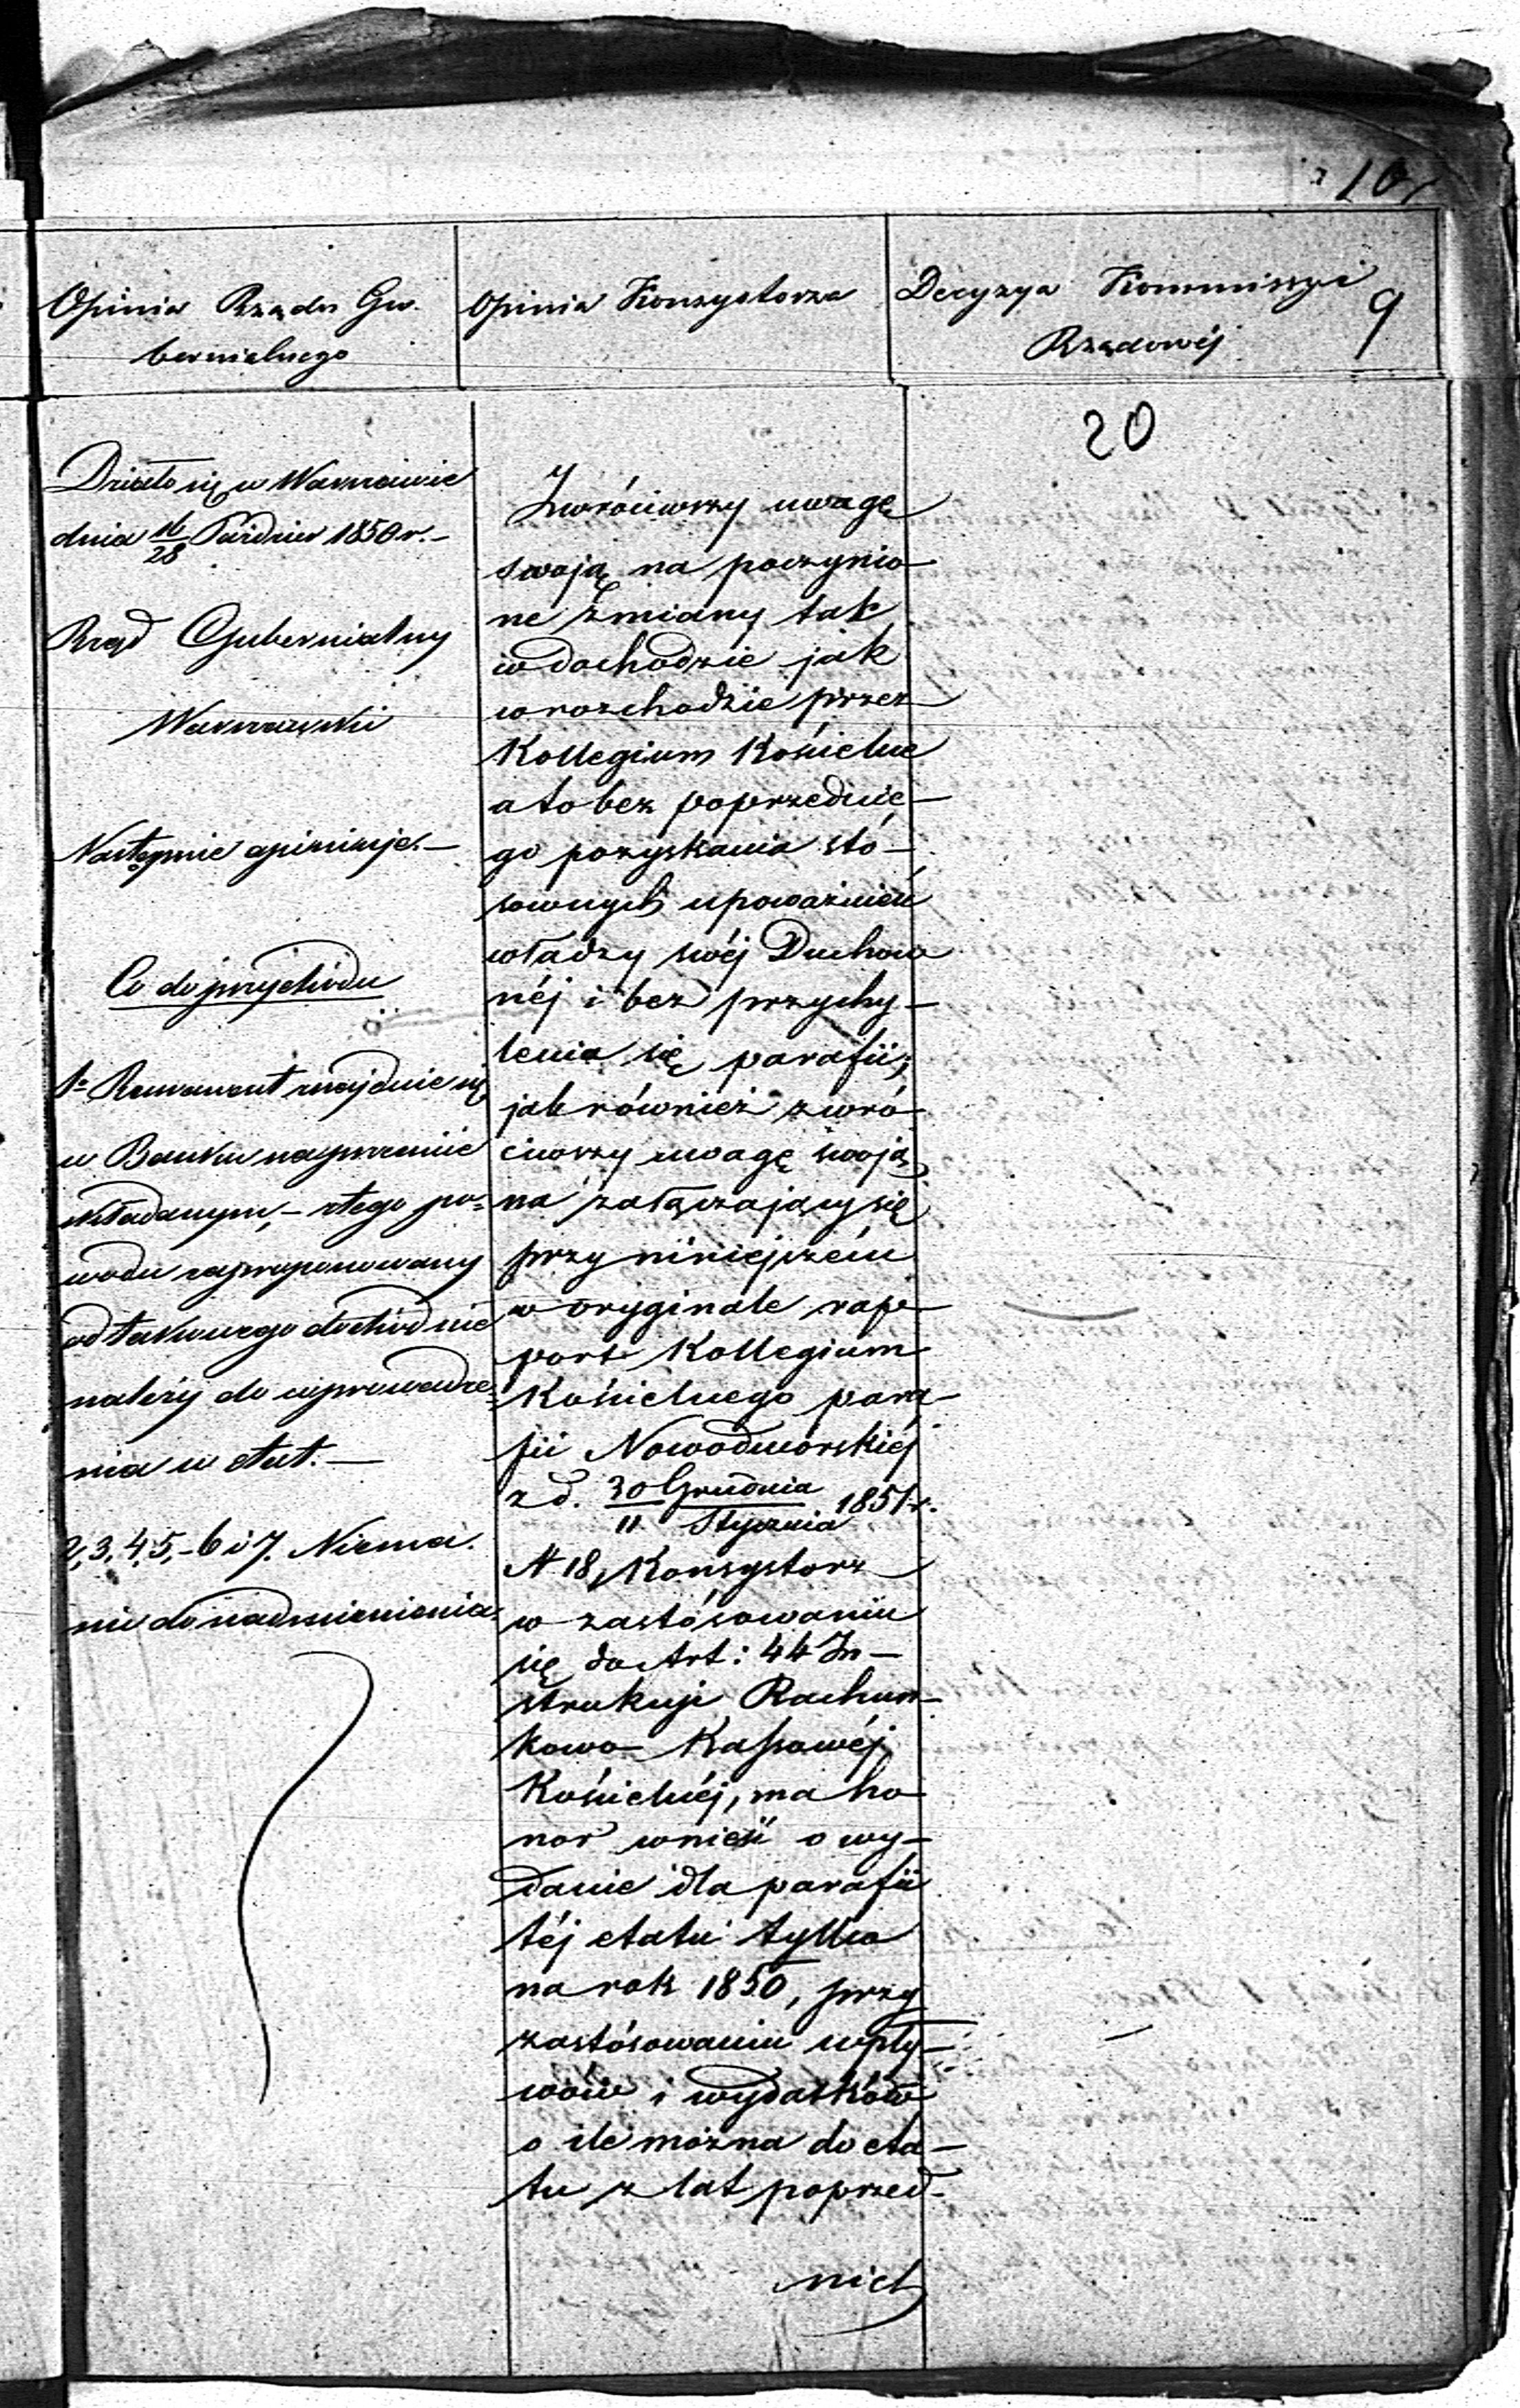 10
Opinia Rządu Gu-
bernialnego
Opinia Konsystorza
Decyzya Kommissyi
Rządowéj
9
20
Działo się w Warszawie
dnia 16/28 Paździer 1850 r. –
Rząd Gubernialny
Warszawski
Następnie opiniuje. –
Co do przychodu
1o Remanent znajduie się
w Banku na procencie
składanym, – z tego po=
wodu zaproponowany
od takowego dochód nie
należy do wprowadze=
nia w etat. –
2, 3, 4, 5, – 6 i 7. Niema
nic do nadmienienia.
Zwróciwszy uwagę
swoją na poczynio–
ne zmiany tak
w dochodzie jak
w rozchodzie przez
Kollegium Kościelne
a to bez poprzednie–
go pozyskania stó–
sownych upoważnień
władzy swéj Duchow
néj i bez przychy–
lenia się parafii;
jak również zwró–
ciwszy uwagę swoją
na załączający się
przy niniejszém
w oryginale rap–
port Kollegium
Kościelnego para–
fii Nowodworskiéj
z d. 30 Grudnia/11 Stycznia 1851 r.
N 18, Konsystorz
w zastósowaniu
się do Art: 44 In–
strukcji Rachun–
kowo Kassowéj
Kościelnéj, ma ho–
nor wnieść o wy–
danie dla parafii
téj etatu tylko
na rok 1850, przy
zastósowaniu wpły–
wów i wydatków
o ile można do eta–
tu z lat poprzed–
nich